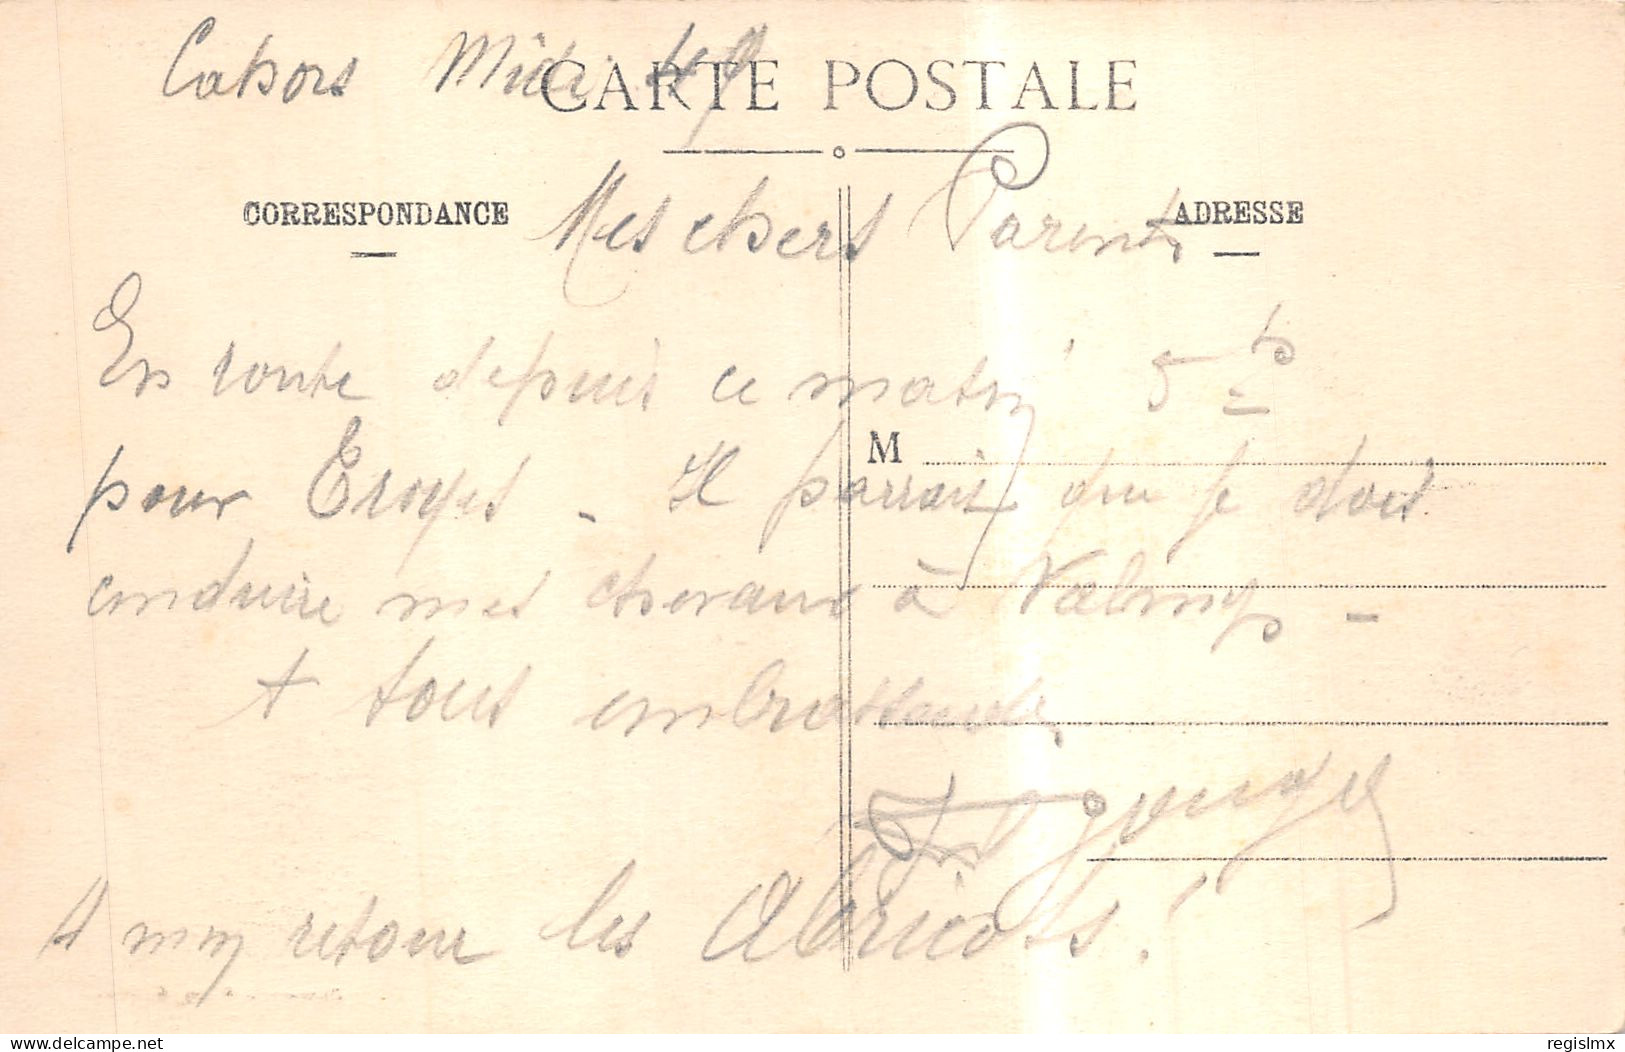 Cahors Midi
CARTE POSTALE
CORRESPONDANCE
ADRESSE
Mes chers Parents
En route depuis ce matin 5 h
pour Troyes - Il parrait que je dois
M
conduire mes chevaux à
A tous embrassade
A mon retour les Abricots !
delcampe.net
regislmx